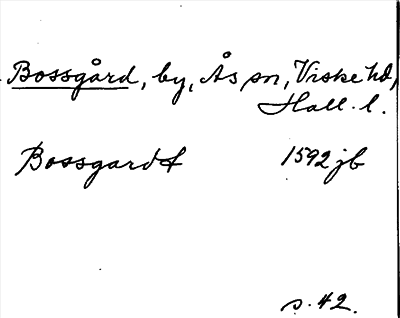 Bossgård, by, Ås sn, Viske hd,
Hall. l.
Bossgardt 1592 jb
s. 42.